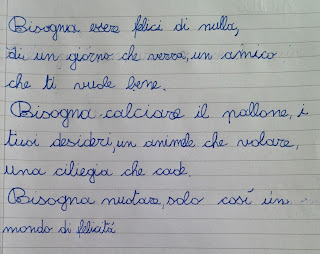 Bisogna essere felici di nulla,
di un giorno che verrà, un amico
che ti vuole bene.
Bisogna calciare il pallone, i
tuoi desideri, un animale che volare,
una ciliegia che cade.
Bisogna nuotare, solo così un
mondo di felicità